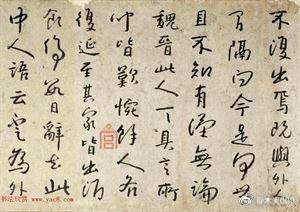 不復出焉既與外人
間隔問今是何世
且不知有漢無論
魏晉此人一一具言所
聞皆歎惋餘人各
復延至其家皆出酒
食停數日辭去此
中人語云不足為外
书法欣赏
www.yac8.com